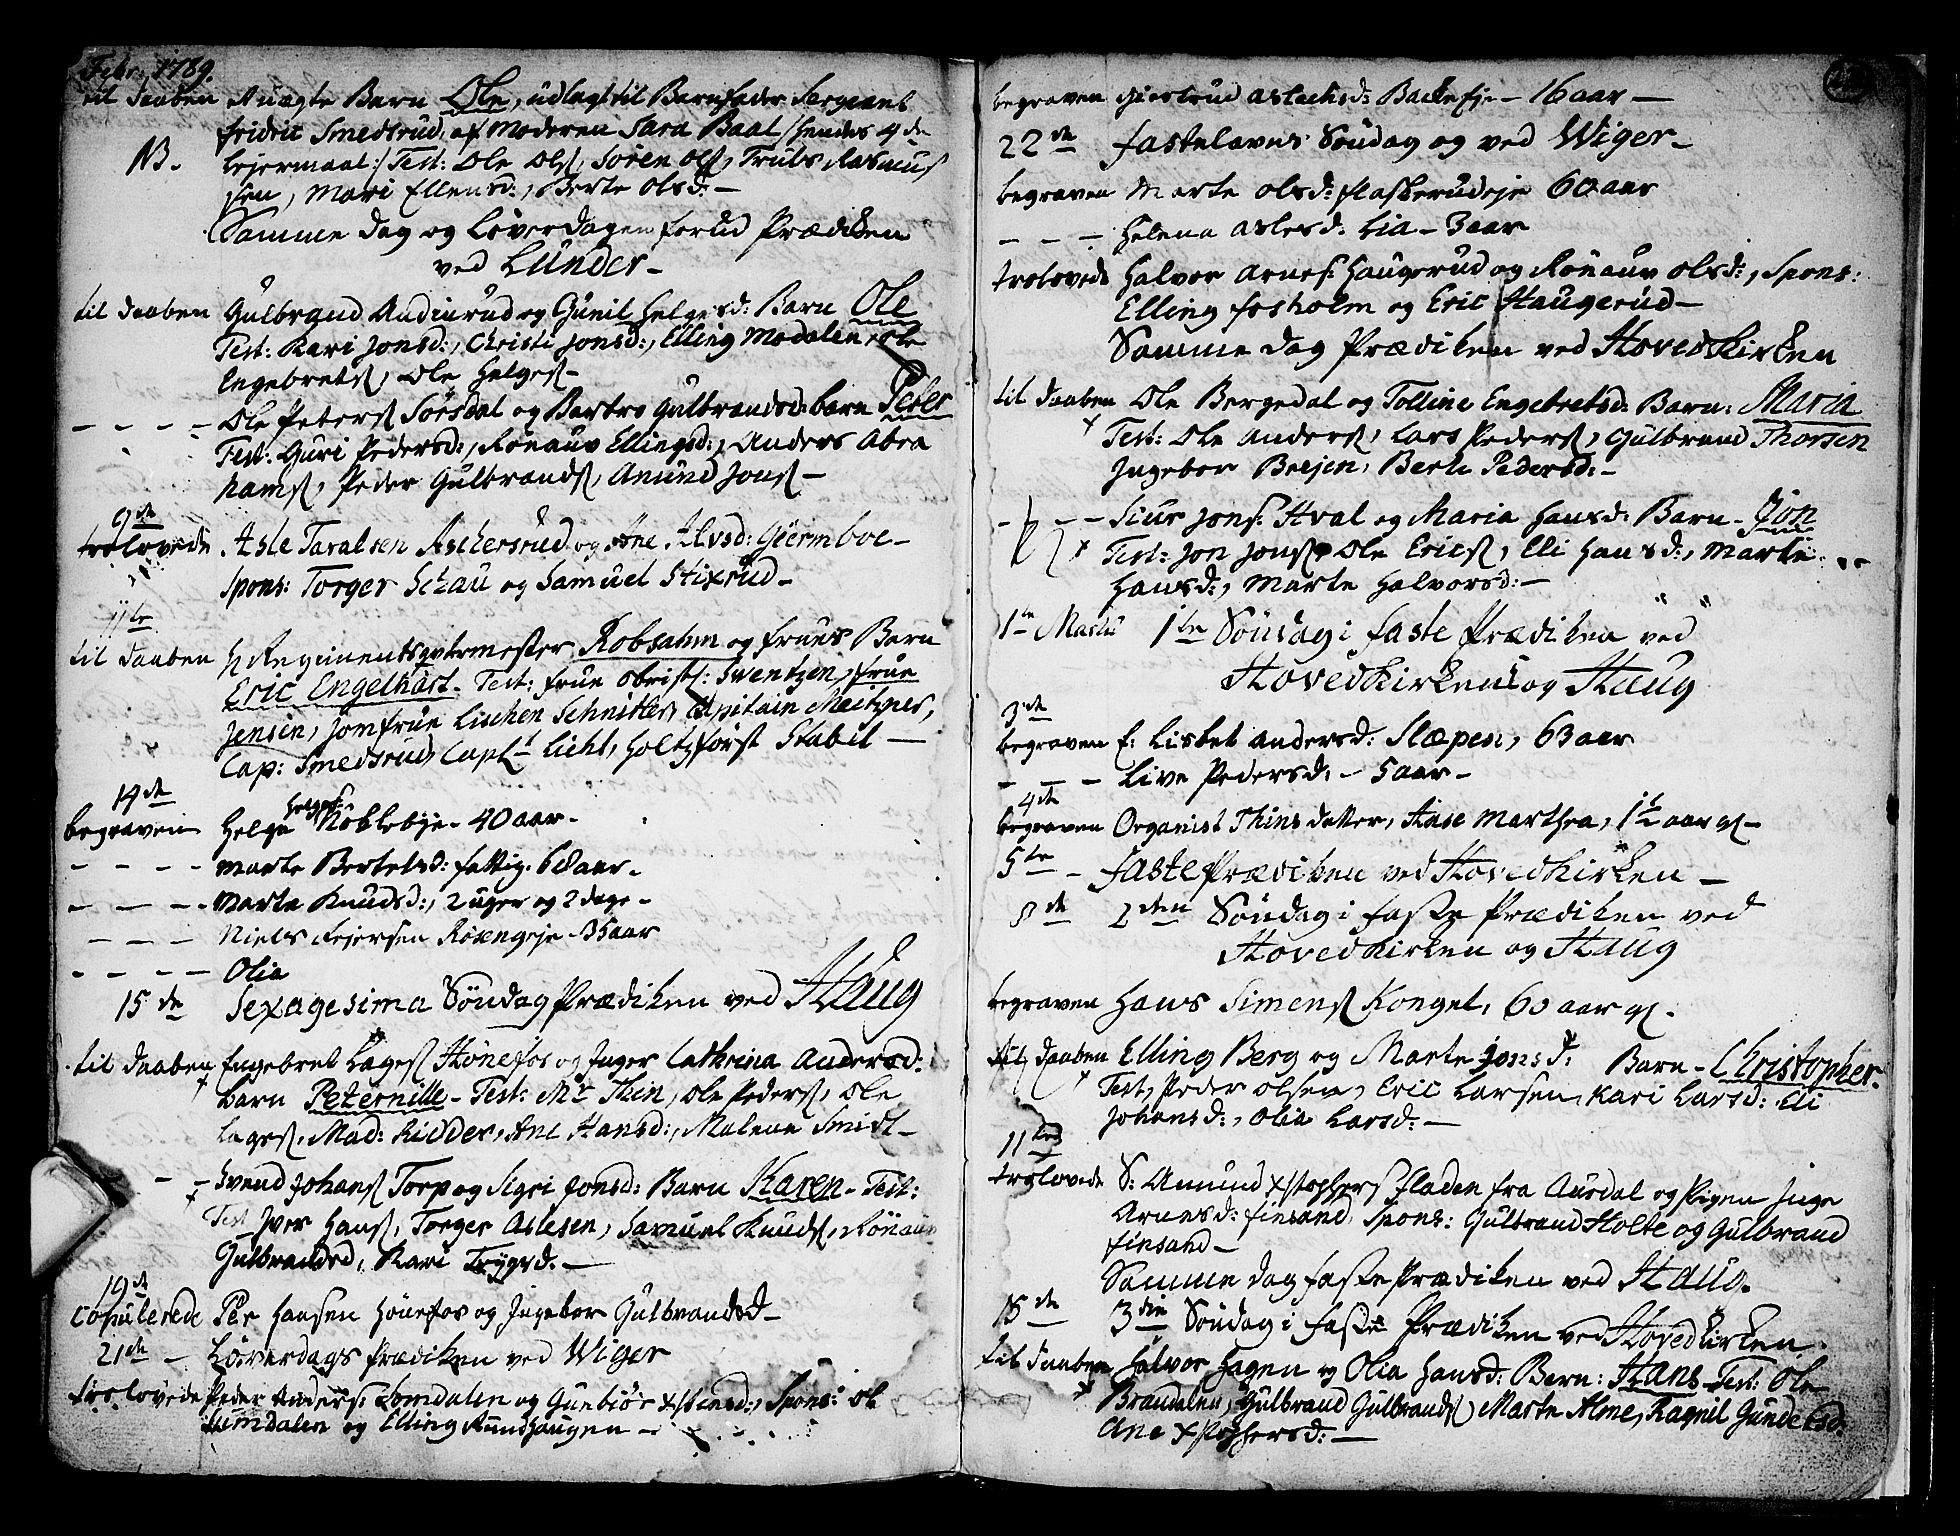 Febr. 1789.
til Daaben Auægte Barn Ole, udlagt til Barnefader Sergeant
fridric Smedsrud, af Moderen Sara Baal /: hendes 4de
NB. Lejermaal :/ Test: Ole Ols, Søren Ols, Truls Rasmus
sen, Mari Ellensd:, Berte Olsd: –
Samme Dag og Løverdagen forud Prædiken
ved Lunder –
til Daaben Gulbrand Andinrud og Gunil Helgesd: Barn Ole
Test: Kari Jonsd:, Christi Jonsd:, Elling Modalen, Ole
Engebrets, Ole Helges –
– – – – Ole Peters Sørsdal og Gulbrandsd: barn Peder
Test: Guri Pedersd:, Rønauv Ellingsd:, Anders Abra
hams, Peder Gulbrands, Amund Jons –
9de
trolovede Asle Taralsen Aschersrud og Ane Alvsd: Gjermboe –
Spons: Torger Schau og Samuel Stixrud –
11te
til Daaben H Regimentsqvtrmester Robsahm og Frues Barn
Eric Engelhart. Test: frue Obristl: Swentzen, frue
Jensen, Jomfrue Lischen Schnitler, Capitain Meitzner,
Cap: Smedsrud, Capt Licht, Holtzførst Stabil –
14de
begraven Helge Helges: Nøblebeje – 40 aar –
– – – – Marte Bertelsd: fattig. 68 aar –
– – – – Marte Knudsd:, 2 uger og 2 dage –
– – – Niels Fejersen Rosengeje 35 aar
– – – – Olia
15de Sexagesima Søndag Prædiken ved Haug
til Daaben Engebret Lages Hønefos og Inger Cathrina Andersd:
barn Peternille – Test: Mr Thin, Ole Peders, Ole
Lages, Mad: Ridder, Ane Hansd:, Malene Smidt –
– – Svend Johans Torp og Sigri Jonsd: Barn Karen – Test:
Test Iver Hans, Torger Aslesen, Samuel Knuds, Rønauv
Gulbrandsd, Kari Trygsd. –
19de
Copulerede Per Hansen Hønefos og Ingebor Gulbrandsd –
21de – Løverdags Prædiken ved Wiger
trolovede Peder Anders: Somdalen og Gunbiør xstensd:, Spons: Ol
Somdalen og Elling –
begraven Giertrud Aslachsd: Backe Eje – 16 aar –
22de fastelavns Søndag og ved Wiger –
begraven Marte Olsd: flaskerudeje 60 aar
– – – Helena Aslesd: Lia – 3 aar
trolovede Halvor Arnes: Haugerud og Rønauv Olsd:, Spons:
Elling fosholm og Eric Haugerud –
Samme Dag Prædiken ved Hovedkirken
til Daaben Ole Bergedal og Tolline Engebretsd: Barn: Maria
Test: Ole Anders, Lars Peders, Gulbrand Thorsen
Ingebor Brejen, Berte Pedersd: –
– – – Siur Jons: Hval og Maria Hansd: Barn – Jon
Test: Jon Jons, Ole Erics, Eli Hansd:, Marte
Hansd:, Marte Halvorsd: –
1te Martii 1te Søndag i faste Prædiken ved
Hovedkirken og Haug
3de
begraven E: Lisbet Andersd: Slæpen, 63 aar
– – – Live Pedersd: – 5 aar –
4de
begraven Organist Thins datter, Aase Marthea, 1½ aar gl –
5te – faste Prædiken ved Hovedkirken –
8de 2den Søndag i faste Prædiken ved
Hovedkirken og Haug
begraven Hans Simens Konget, 60 aar gl.
til Daaben Elling Berg og Marte Jonsd: Barn – Christopher.
Test, Peder Olsen, Eric Larsen, Kari Larsd: Eli
Johansd:, Olia Larsd: –
11te
trolovede S: Amund xstophers fladen fra Aurdal og Pigen Inge
Arnesd: finsand, Spons: Gulbrand Holte og Gulbrand
finsand –
Samme dag faste Prædiken ved Haug.
15de 3die Søndag i faste Prædiken ved Hovedkirken.
til Daaben Halvor Hagen og Olia Hansd: Barn: Hans Test: Ole
Brandalen, Gulbrand Gulbrands, Marte Alme, Ragnil Gundersd:
Ane xstophersd: –